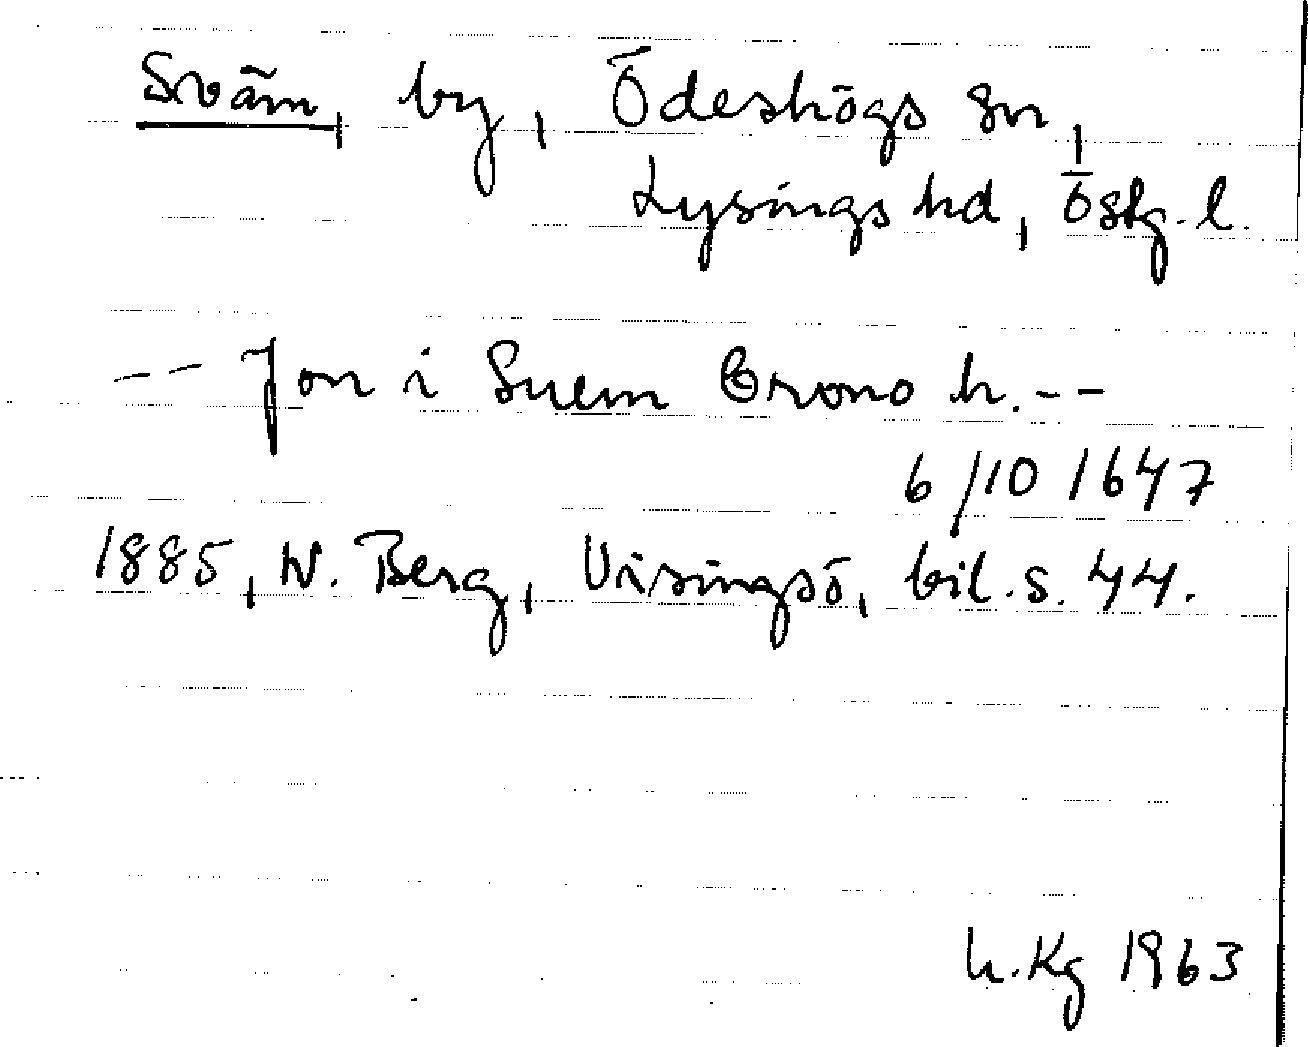 Sväm, by, Ödeshögs sn,
Lysings hd, Östg. l.
-- Jon i Suem Crono h. --
6/10 1647
1885, W. Berg, Visingsö, bil. s. 44.
h. Kg 1963